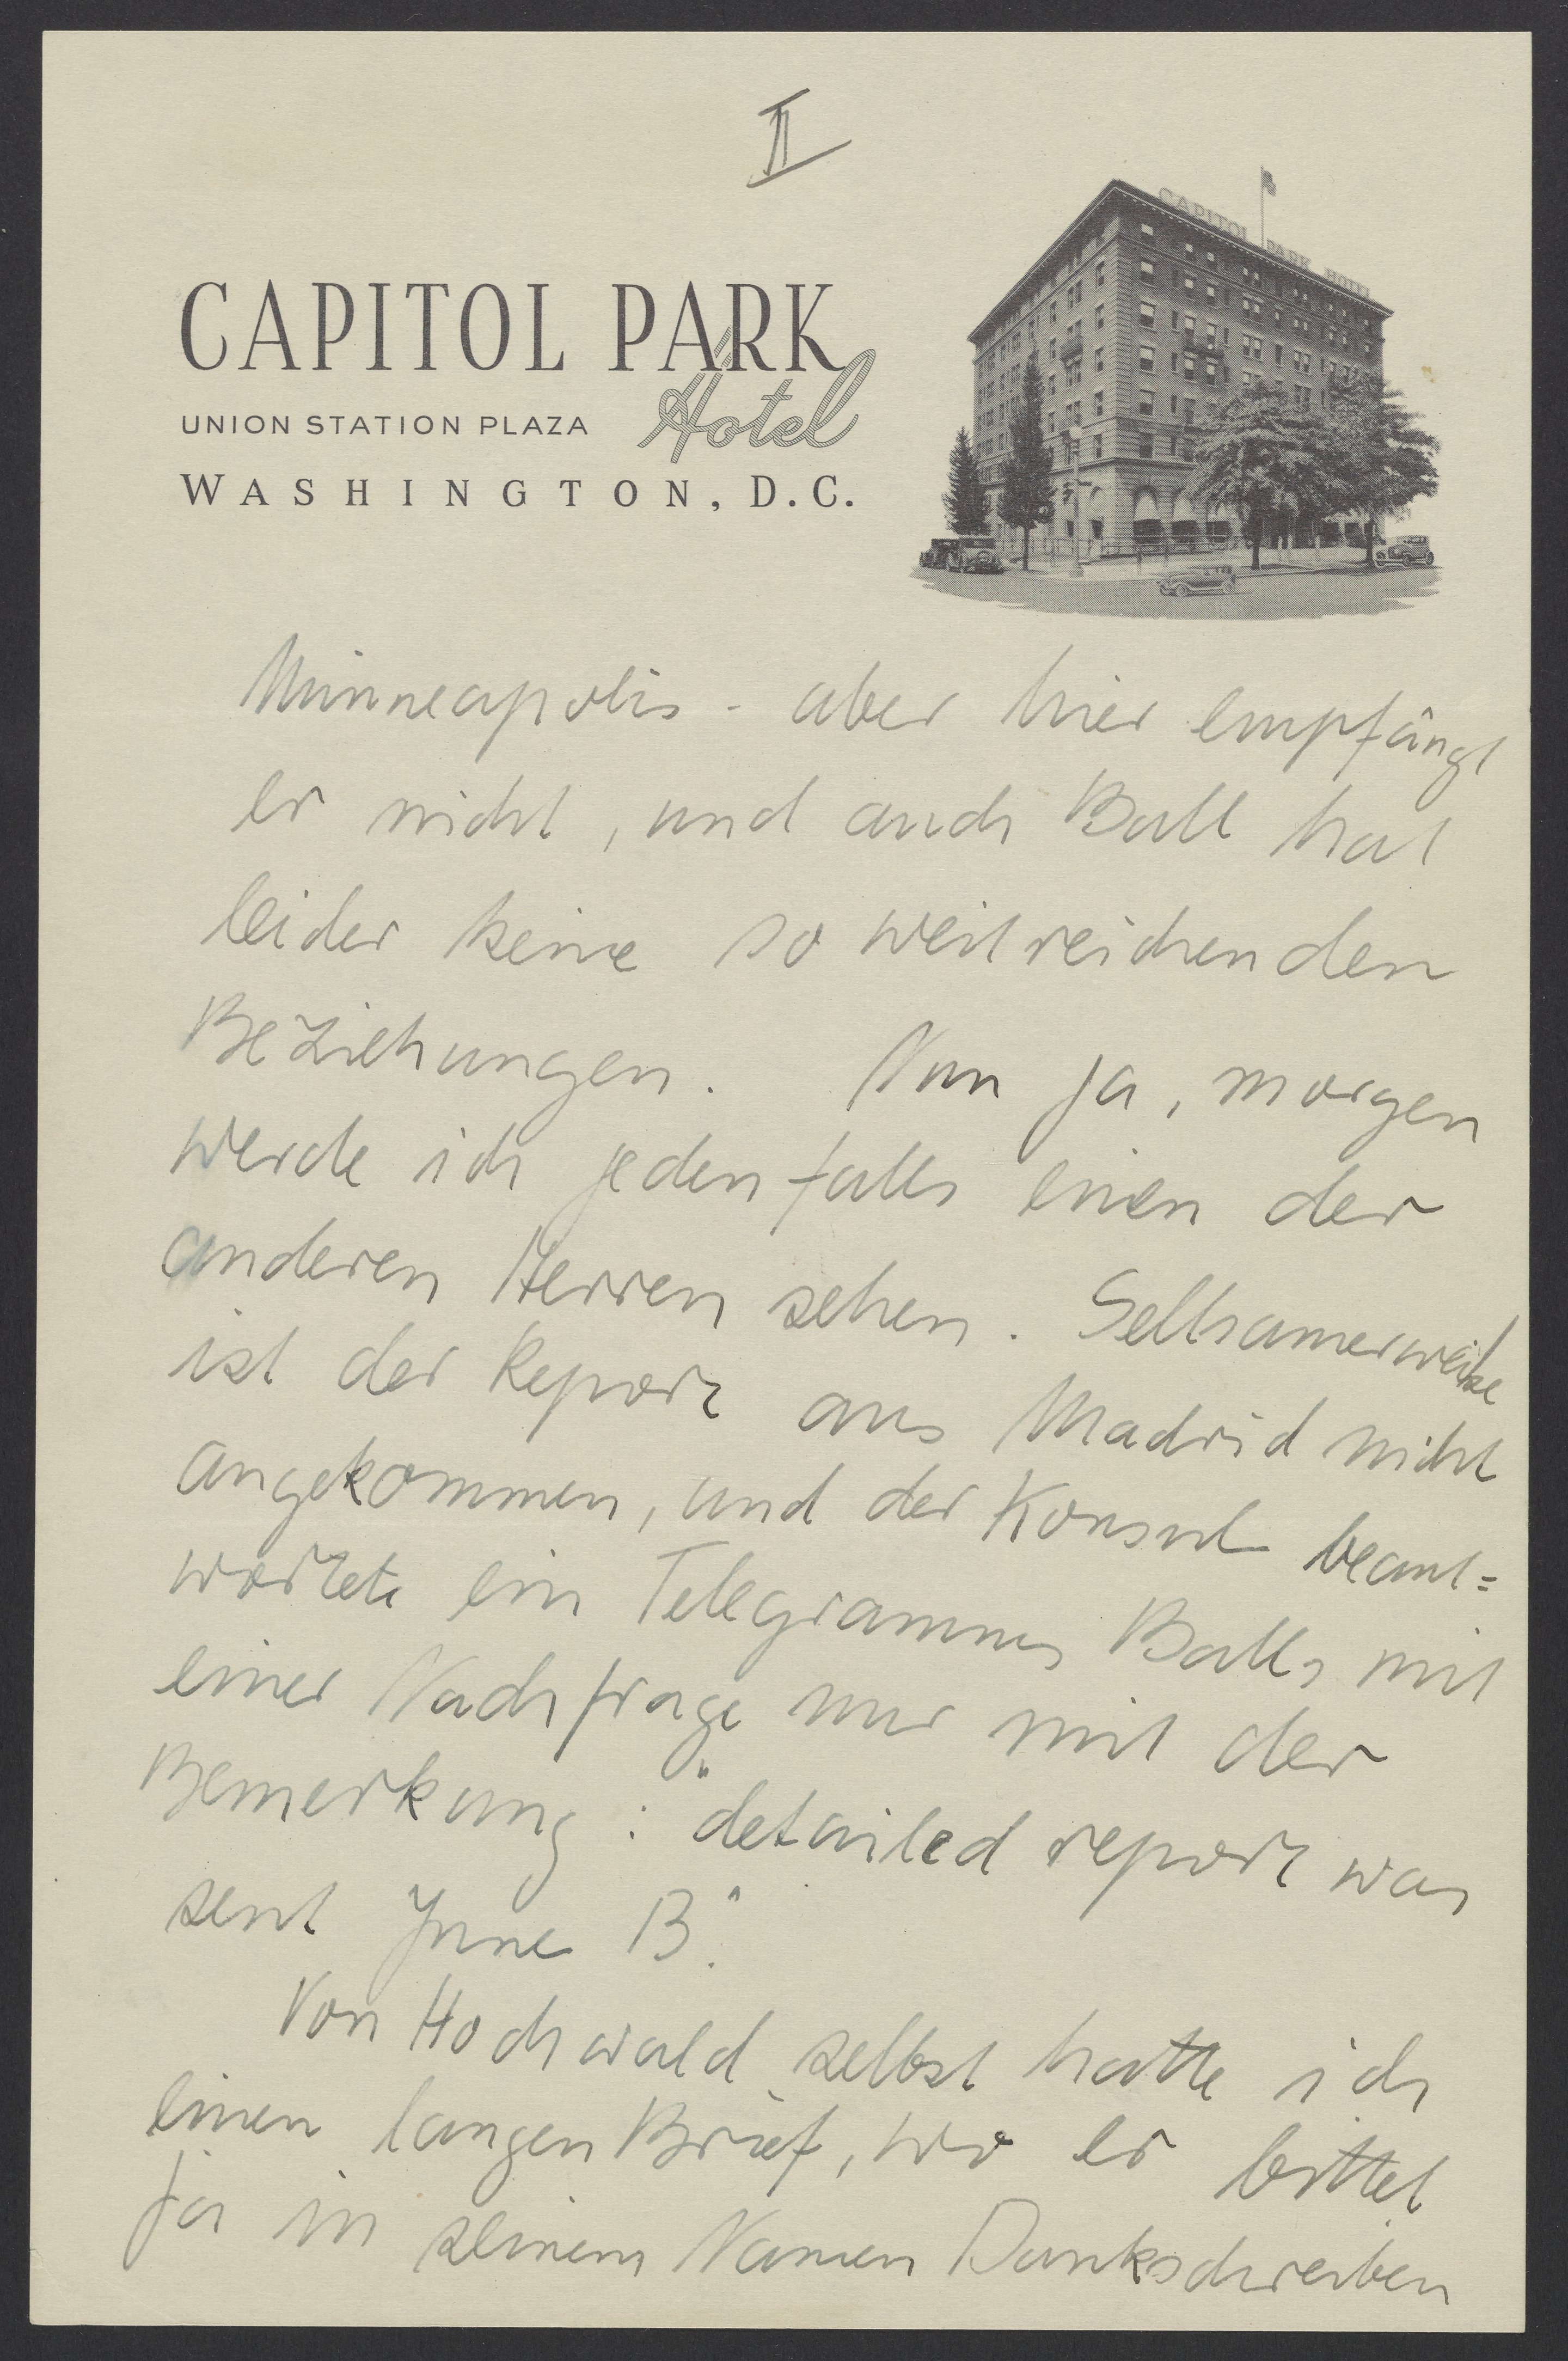 II
CAPITOL PARK HOTEL
CAPITOL PARK
Hotel
UNION STATION PLAZA
WASHINGTON, D.C.
Minneapolis - aber hier empfängt
er nicht, und auch Ball hat
leider keine so weitreichenden
Beziehungen. Nun ja, morgen
werde ich jedenfalls einen der
anderen Herren sehen. Seltsamerweise
ist der Report aus Madrid nicht
angekommen, und der Konsul beant=
wortete ein Telegramm Balls mit
einer Nachfrage nur mit der
Bemerkung: "detailed report was
sent June 13".
Von Hochwald selbst hatte ich
einen langen Brief, wo er bittet
ja in seinem Namen Dankschreiben